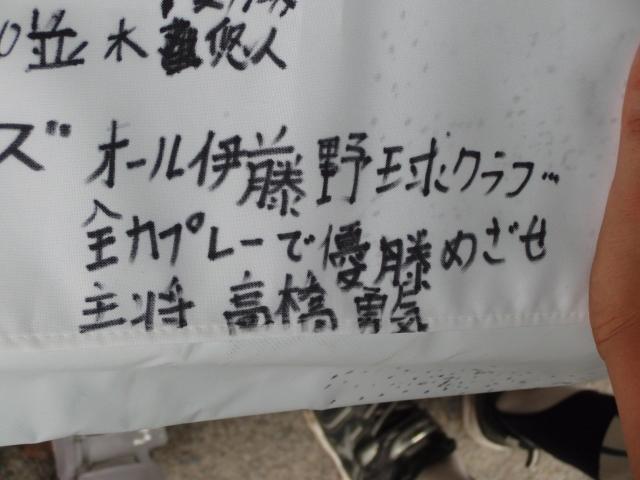 並木 悠人
ズ
オール伊藤野球クラブ
全力プレーで優勝めざせ
主将 高橋 勇気